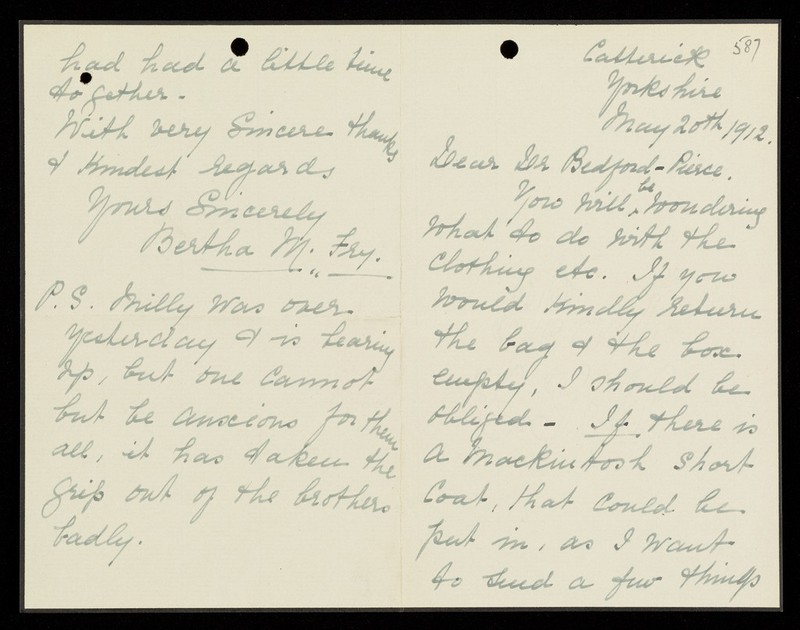 587
Catterick
Yorkshire
May 20th 1912.
Dear Dr Bedford-Pierce.
You will be wondering
what to do with the
clothing etc. If you
would kindly return
the bag & the box
empty, I should be
obliged - If there is
a Mackintosh short
Coat, that could be
put in, as I want
to send a few things
had had a little time
together -
With very sincere thanks
& kindest regards
Yours Sincerely
Bertha M. Fry.
P.S. Milly was over
yesterday & is bearing
up, but one cannot
but be anxious for them
all, it has taken the
grip out of the brothers
badly.